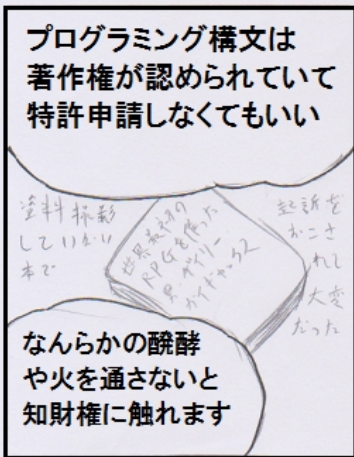 プログラミング構文は
著作権が認められていて
特許申請しなくてもいい
資料撮影
していない
本で
世界最初の
RPGを作った
男 ゲイリー
ガイギャックス
起訴を
おこさ
れて
大変
だった
なんらかの醗酵
や火を通さないと
知財権に触れます